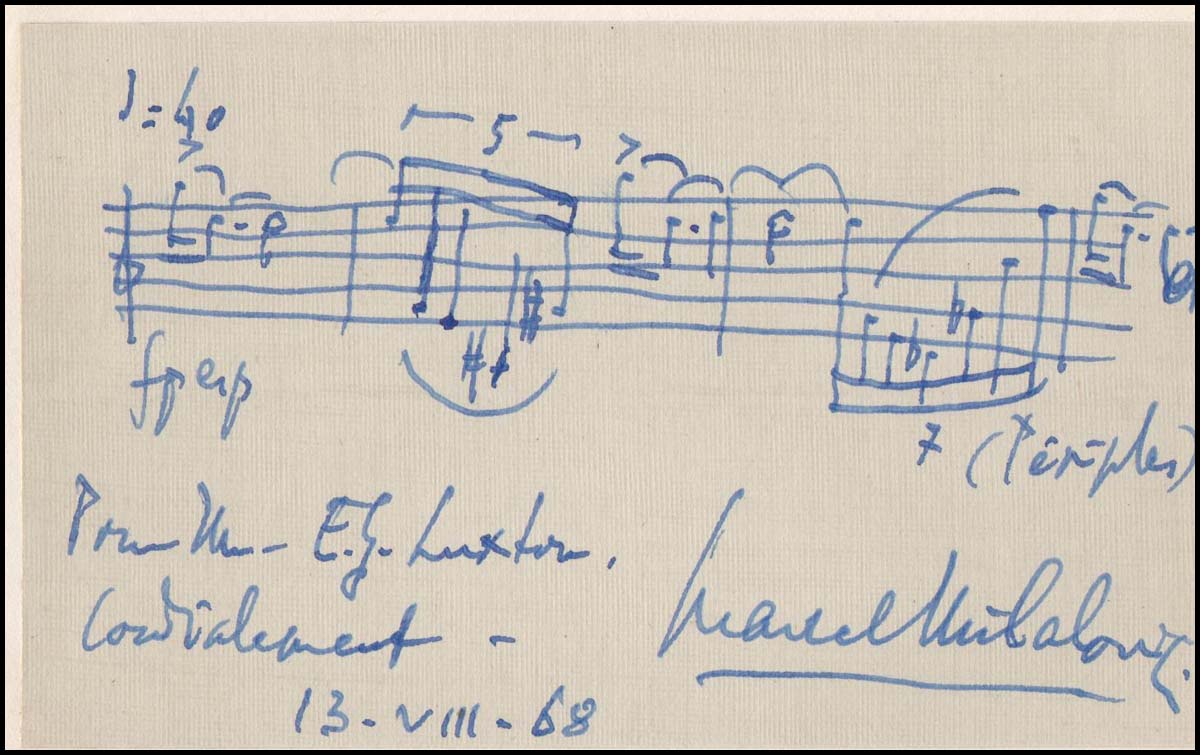 ♩=40
5
fp esp
7 (Périples)
Pour M. E.G. Luxton.
Cordialement -
Marcel Mihalovici.
13-VIII-68